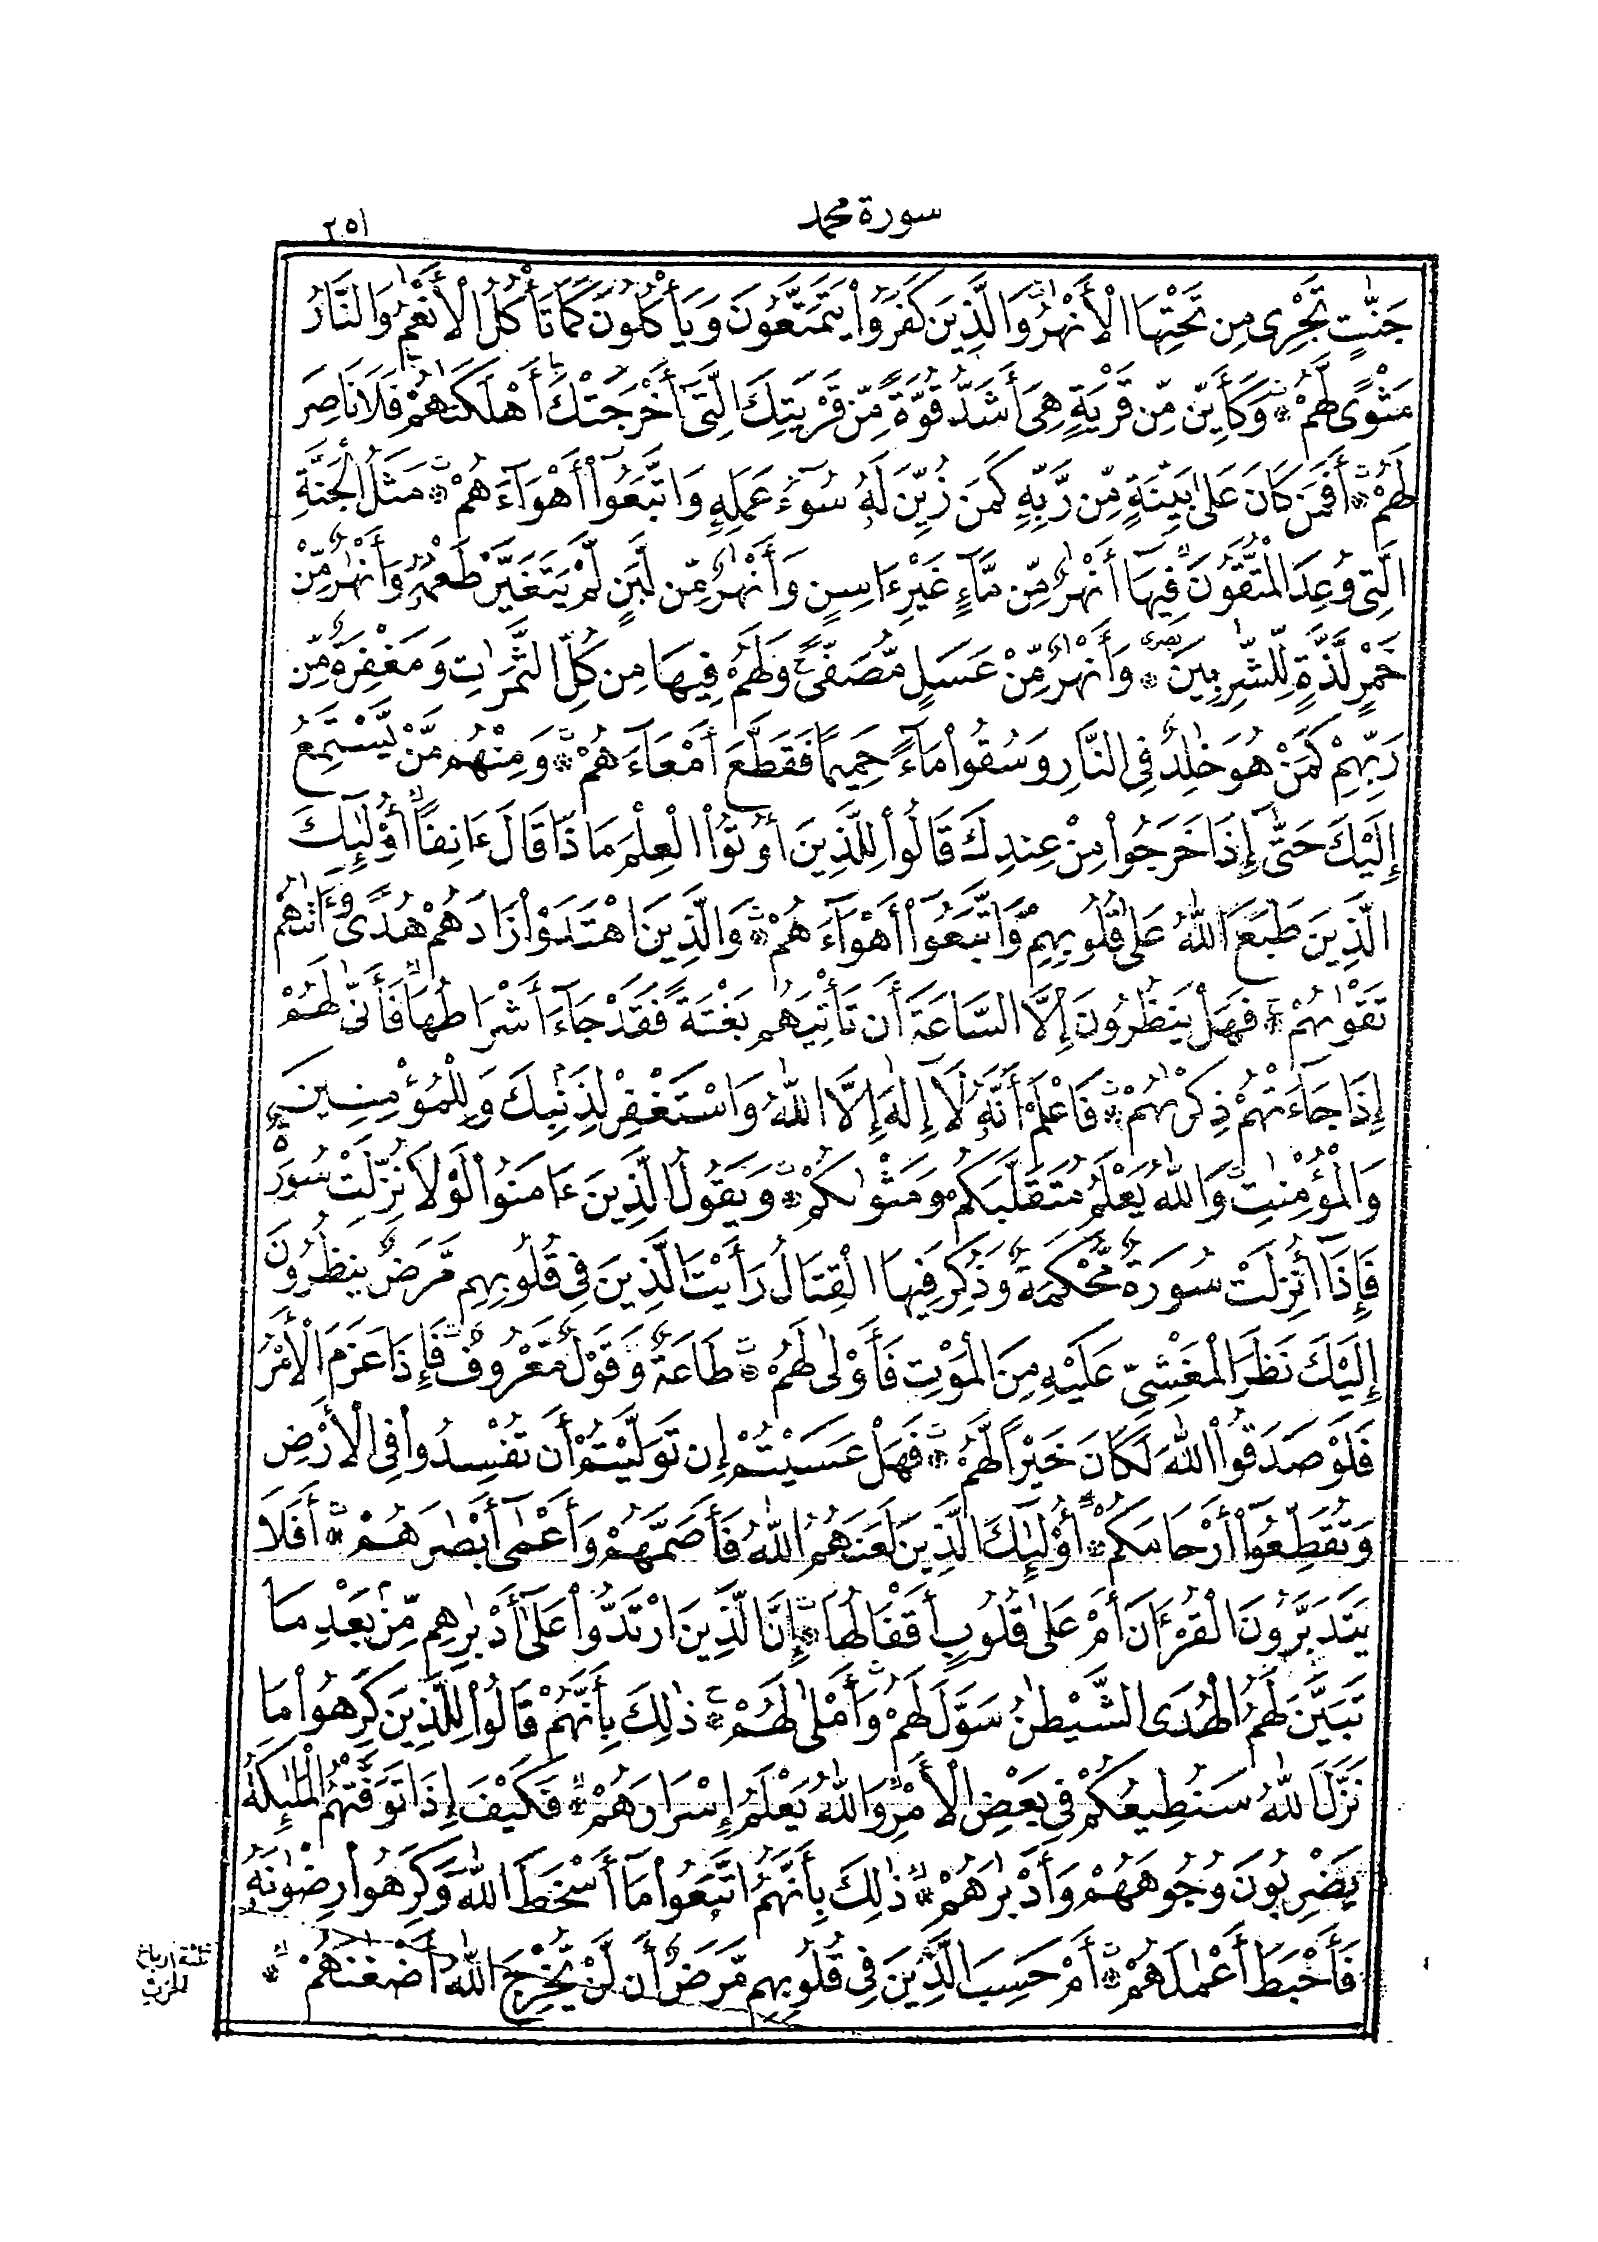 سورة محمد
٢٥١
جَنَّٰتٍ تَجْرِى مِن تَحْتِهَا الْأَنْهَٰرُ وَالَّذِينَ كَفَرُواْ يَتَمَتَّعُونَ وَيَأْكُلُونَ كَمَا تَأْكُلُ الْأَنْعَٰمُ وَالنَّارُ
مَثْوًى لَّهُمْ ۞ وَكَأَيِّن مِّن قَرْيَةٍ هِىَ أَشَدُّ قُوَّةً مِّن قَرْيَتِكَ الَّتِىٓ أَخْرَجَتْكَ أَهْلَكْنَٰهُمْ فَلَا نَاصِرَ
لَهُمْ ۞ أَفَمَن كَانَ عَلَىٰ بَيِّنَةٍ مِّن رَّبِّهِ كَمَن زُيِّنَ لَهُ سُوٓءُ عَمَلِهِ وَاتَّبَعُوٓاْ أَهْوَآءَهُمْ ۞ مَثَلُ الْجَنَّةِ
الَّتِى وُعِدَ الْمُتَّقُونَ فِيهَآ أَنْهَٰرٌ مِّن مَّآءٍ غَيْرِ ءَاسِنٍ وَأَنْهَٰرٌ مِّن لَّبَنٍ لَّمْ يَتَغَيَّرْ طَعْمُهُ وَأَنْهَٰرٌ مِّنْ
خَمْرٍ لَّذَّةٍ لِّلشَّٰرِبِينَ ۞ وَأَنْهَٰرٌ مِّنْ عَسَلٍ مُّصَفًّى وَلَهُمْ فِيهَا مِن كُلِّ الثَّمَرَٰتِ وَمَغْفِرَةٌ مِّن
رَّبِّهِمْ كَمَنْ هُوَ خَٰلِدٌ فِى النَّارِ وَسُقُواْ مَآءً حَمِيمًا فَقَطَّعَ أَمْعَآءَهُمْ ۞ وَمِنْهُم مَّن يَسْتَمِعُ
إِلَيْكَ حَتَّىٰٓ إِذَا خَرَجُواْ مِنْ عِندِكَ قَالُواْ لِلَّذِينَ أُوتُواْ الْعِلْمَ مَاذَا قَالَ ءَانِفًا أُوْلَٰٓئِكَ
الَّذِينَ طَبَعَ اللَّهُ عَلَىٰ قُلُوبِهِمْ وَاتَّبَعُوٓاْ أَهْوَآءَهُمْ ۞ وَالَّذِينَ اهْتَدَوْاْ زَادَهُمْ هُدًى وَءَاتَىٰهُمْ
تَقْوَىٰهُمْ ۞ فَهَلْ يَنظُرُونَ إِلَّا السَّاعَةَ أَن تَأْتِيَهُم بَغْتَةً فَقَدْ جَآءَ أَشْرَاطُهَا فَأَنَّىٰ لَهُمْ
إِذَا جَآءَتْهُمْ ذِكْرَىٰهُمْ ۞ فَاعْلَمْ أَنَّهُ لَآ إِلَٰهَ إِلَّا اللَّهُ وَاسْتَغْفِرْ لِذَنۢبِكَ وَلِلْمُؤْمِنِينَ
وَالْمُؤْمِنَٰتِ وَاللَّهُ يَعْلَمُ مُتَقَلَّبَكُمْ وَمَثْوَىٰكُمْ ۞ وَيَقُولُ الَّذِينَ ءَامَنُواْ لَوْلَا نُزِّلَتْ سُورَةٌ
فَإِذَآ أُنزِلَتْ سُورَةٌ مُّحْكَمَةٌ وَذُكِرَ فِيهَا الْقِتَالُ رَأَيْتَ الَّذِينَ فِى قُلُوبِهِم مَّرَضٌ يَنظُرُونَ
إِلَيْكَ نَظَرَ الْمَغْشِىِّ عَلَيْهِ مِنَ الْمَوْتِ فَأَوْلَىٰ لَهُمْ ۞ طَاعَةٌ وَقَوْلٌ مَّعْرُوفٌ فَإِذَا عَزَمَ الْأَمْرُ
فَلَوْ صَدَقُواْ اللَّهَ لَكَانَ خَيْرًا لَّهُمْ ۞ فَهَلْ عَسَيْتُمْ إِن تَوَلَّيْتُمْ أَن تُفْسِدُواْ فِى الْأَرْضِ
وَتُقَطِّعُوٓاْ أَرْحَامَكُمْ ۞ أُوْلَٰٓئِكَ الَّذِينَ لَعَنَهُمُ اللَّهُ فَأَصَمَّهُمْ وَأَعْمَىٰٓ أَبْصَٰرَهُمْ ۞ أَفَلَا
يَتَدَبَّرُونَ الْقُرْءَانَ أَمْ عَلَىٰ قُلُوبٍ أَقْفَالُهَآ ۞ إِنَّ الَّذِينَ ارْتَدُّواْ عَلَىٰٓ أَدْبَٰرِهِم مِّنۢ بَعْدِ مَا
تَبَيَّنَ لَهُمُ الْهُدَى الشَّيْطَٰنُ سَوَّلَ لَهُمْ وَأَمْلَىٰ لَهُمْ ۞ ذَٰلِكَ بِأَنَّهُمْ قَالُواْ لِلَّذِينَ كَرِهُواْ مَا
نَزَّلَ اللَّهُ سَنُطِيعُكُمْ فِى بَعْضِ الْأَمْرِ وَاللَّهُ يَعْلَمُ إِسْرَارَهُمْ ۞ فَكَيْفَ إِذَا تَوَفَّتْهُمُ الْمَلَٰٓئِكَةُ
يَضْرِبُونَ وُجُوهَهُمْ وَأَدْبَٰرَهُمْ ۞ ذَٰلِكَ بِأَنَّهُمُ اتَّبَعُواْ مَآ أَسْخَطَ اللَّهَ وَكَرِهُواْ رِضْوَٰنَهُ
فَأَحْبَطَ أَعْمَٰلَهُمْ ۞ أَمْ حَسِبَ الَّذِينَ فِى قُلُوبِهِم مَّرَضٌ أَن لَّن يُخْرِجَ اللَّهُ أَضْغَٰنَهُمْ ۞
ثلثة ارباع
الحزب